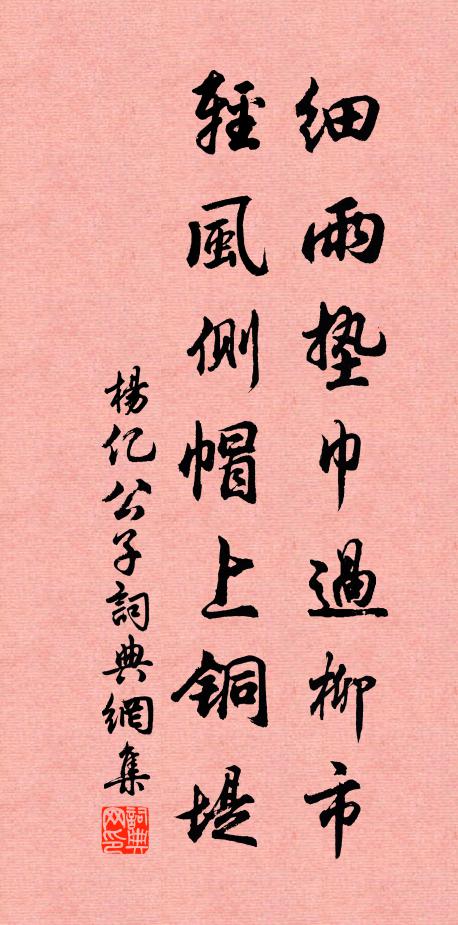 细雨垫巾過柳市
輕風側帽上銅堤
楊亿公子詞典網集
詞典
网印